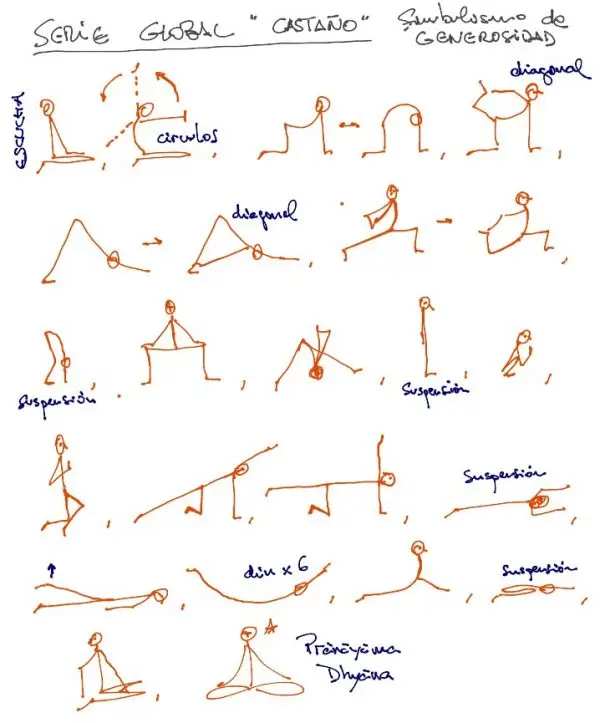 SERIE GLOBAL "CASTAÑO" Simbolismo de
GENEROSIDAD
ESCUCHA
círculos
diagonal
diagonal
suspensión
suspensión
suspensión
din x 6
suspensión
Prānāyāma
Dhyāna